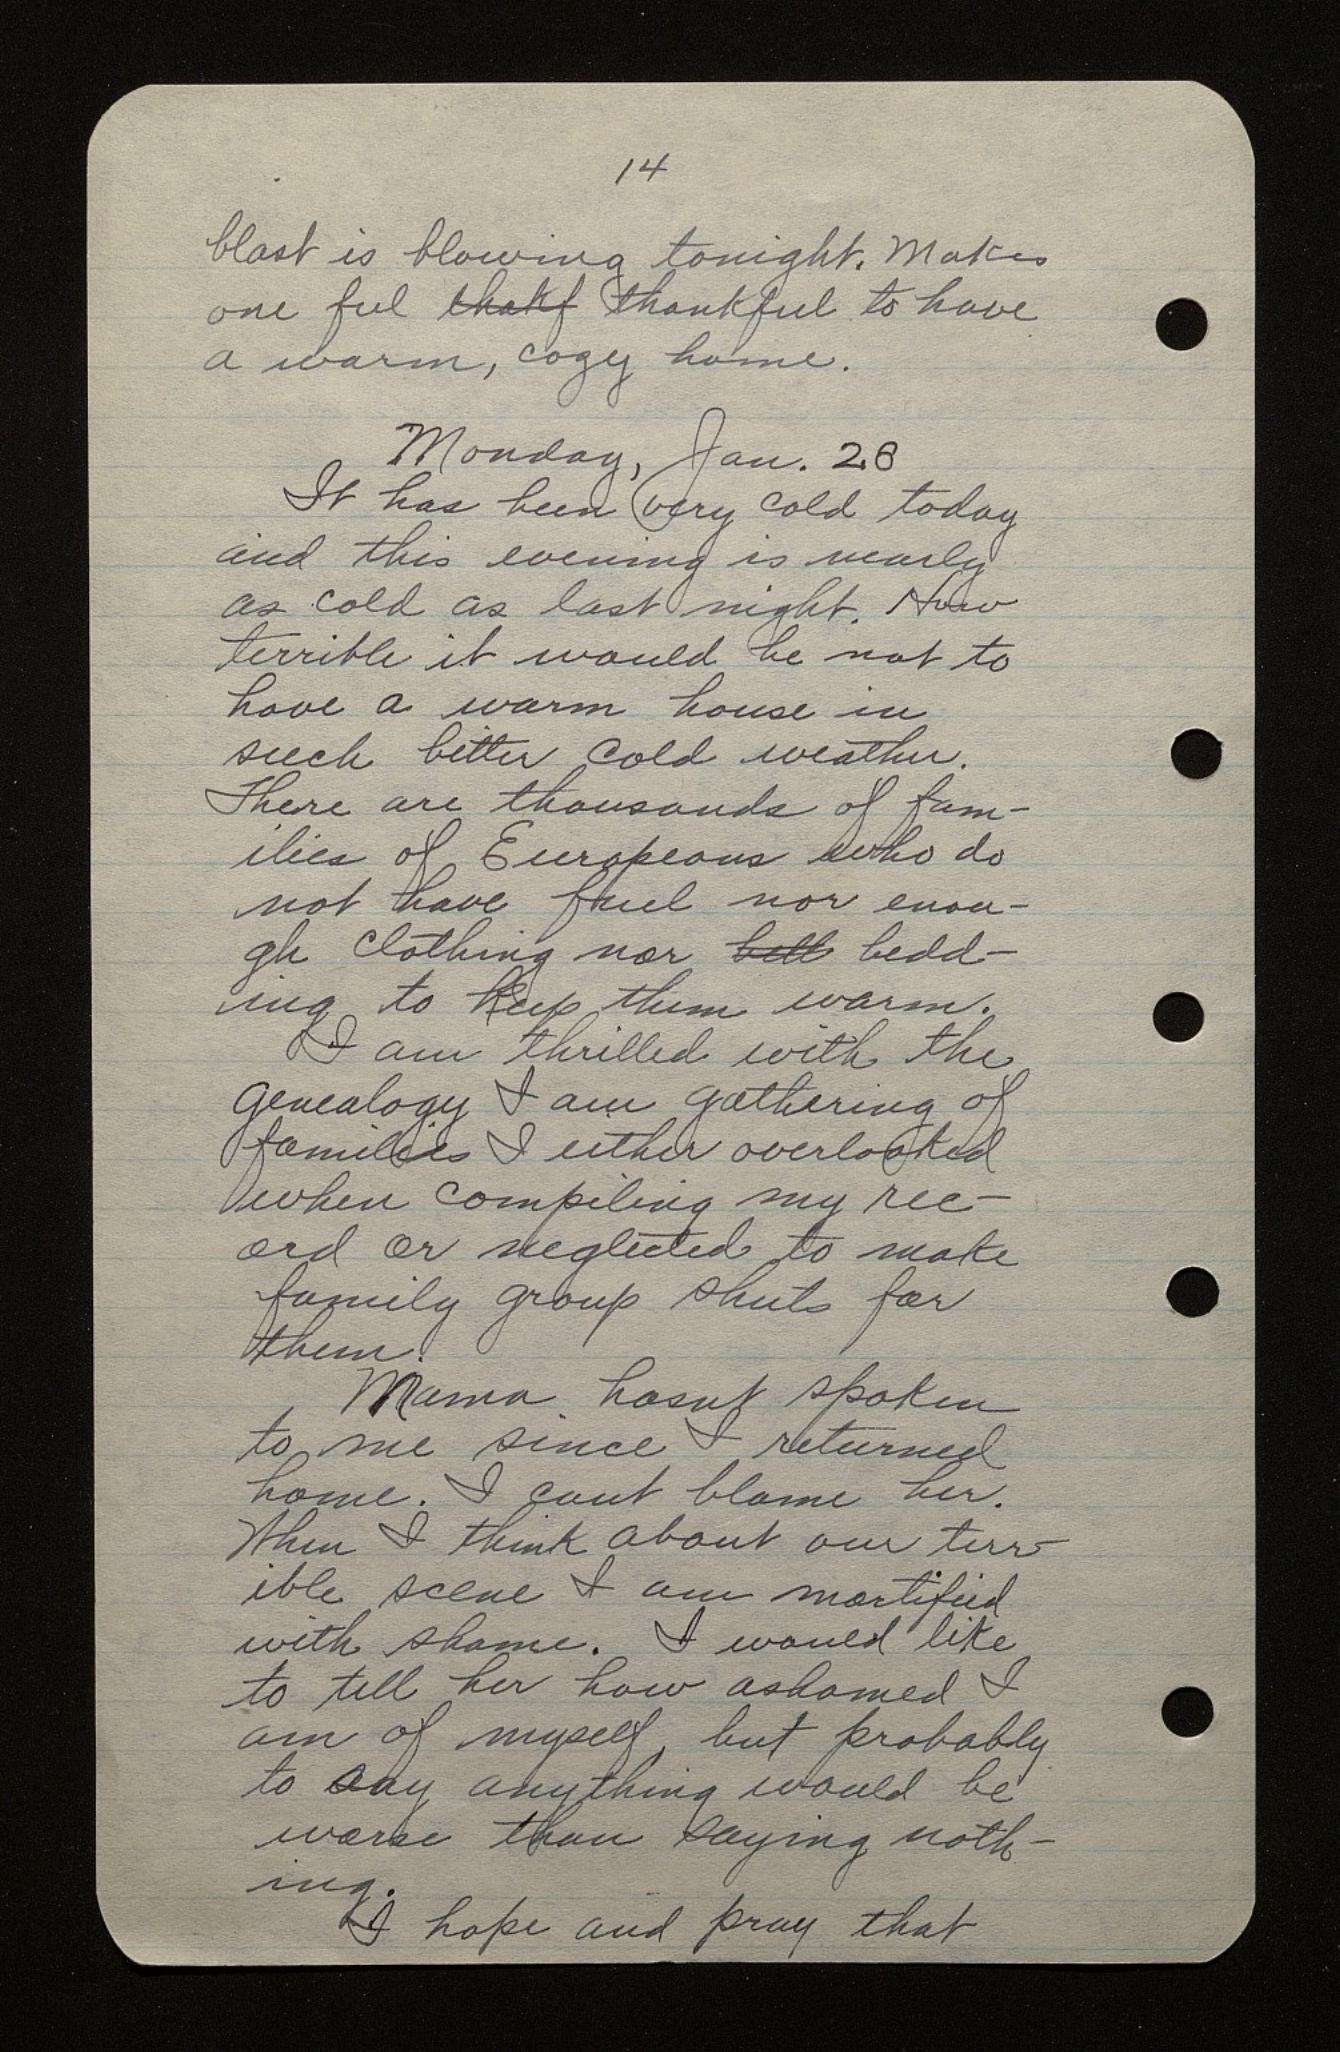 14
blast is blowing tonight. Makes
one feel thakf thankful to have
a warm, cozy home.
Monday, Jan. 28
It has been very cold today
and this evening is nearly
as cold as last night. How
terrible it would be not to
have a warm house in
such bitter cold weather.
There are thousands of fam-
ilies of Europeans who do
not have fuel nor enou-
gh clothing nor bell bedd-
ing to keep them warm.
I am thrilled with the
genealogy I am gathering of
families I either overlooked
when compiling my rec-
ord or neglected to make
family group sheets for
them.
Mama hasnt spoken
to me since I returned
home. I cant blame her.
When I think about our terr-
ible scene I am mortified
with shame. I would like
to tell her how ashamed I
am of myself, but probably
to say anything would be
worse than saying noth-
ing.
I hope and pray that